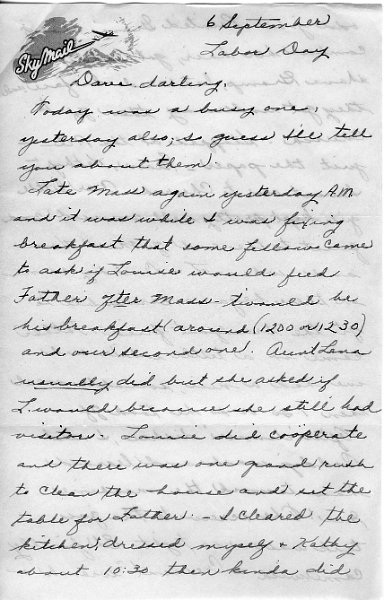 6 September
Sky Mail
Labor Day
Dave darling,
Today was a busy one,
yesterday also, so guess I'll tell
you about them.
Late Mass again yesterday AM
and it was while I was fixing
breakfast that some fellow came
to ask if Louise would feed
Father after Mass - twould be
his breakfast (around (1200 or 1230)
and our second one. Aunt Lena
usually did but she asked if
L. would because she still had
visitors. Louise did coöperate
and there was one grand rush
to clean the house and set the
table for Father. - I cleared the
kitchen, dressed myself & Kathy
about 10:30 then kinda did